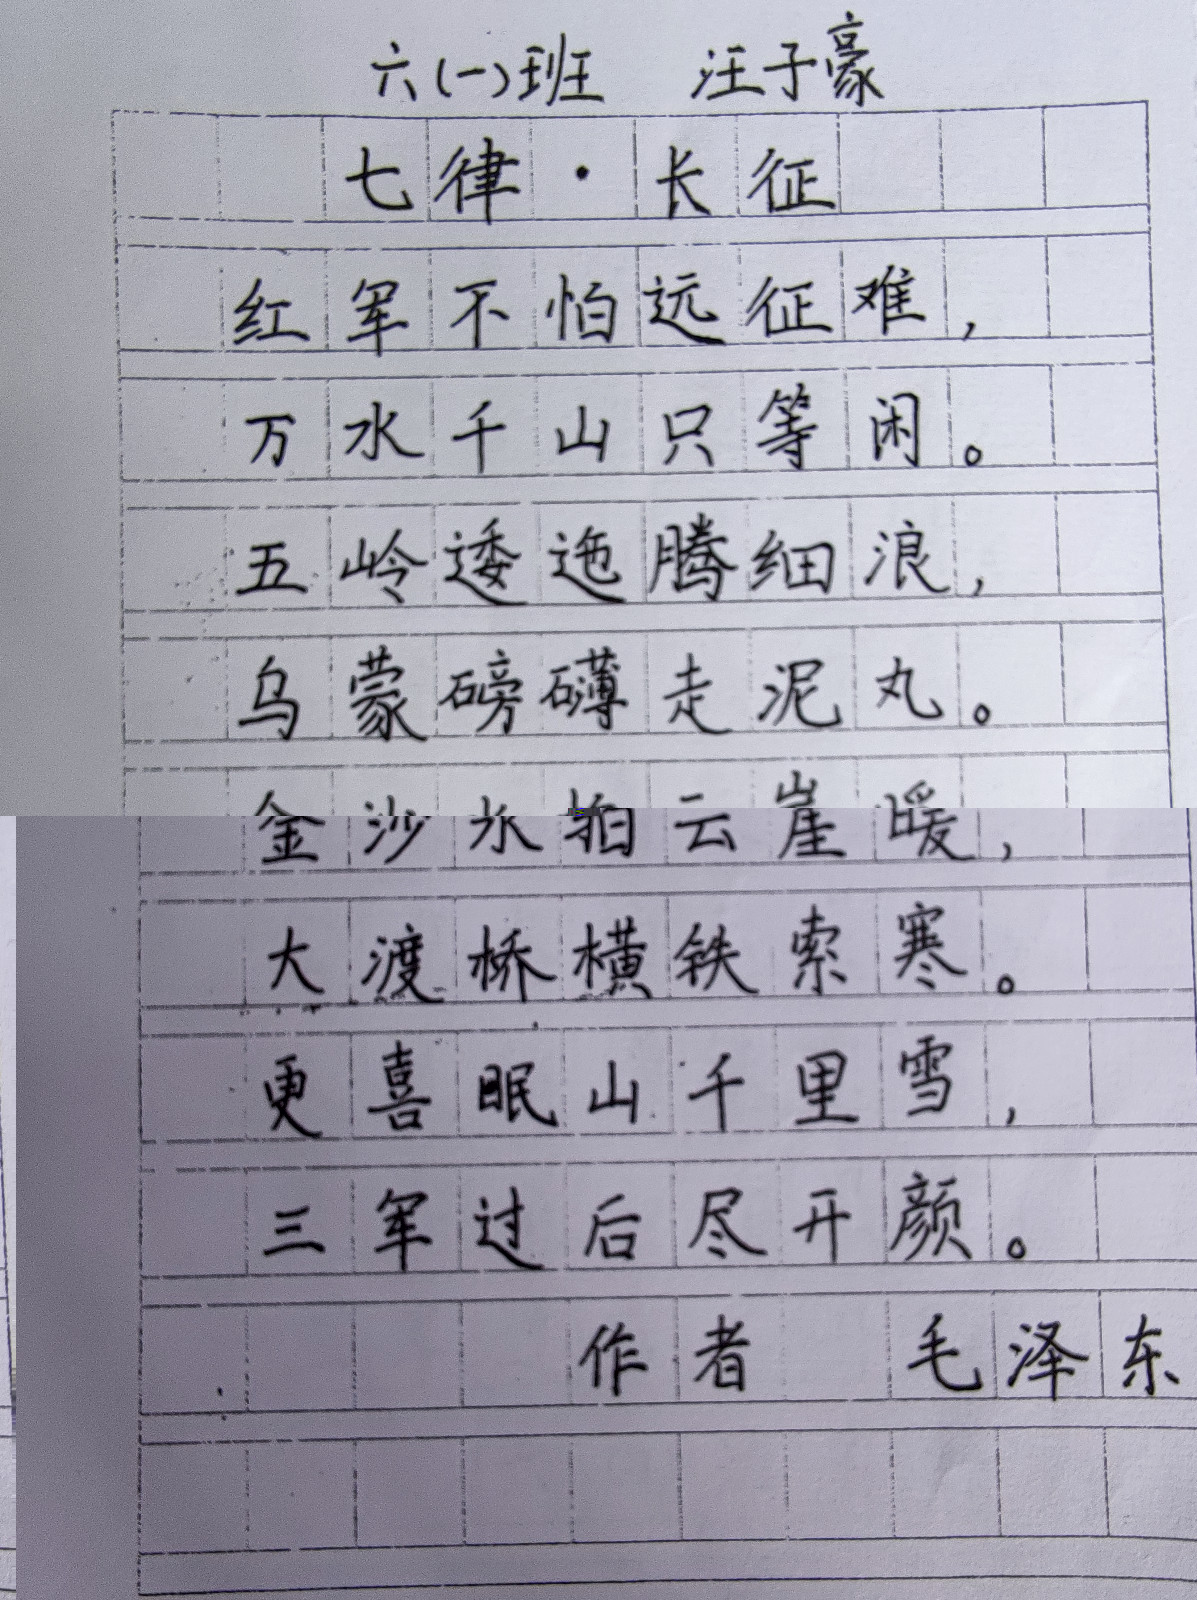 六(一)班 汪子豪
七律·长征
红军不怕远征难,
万水千山只等闲。
五岭逶迤腾细浪,
乌蒙磅礴走泥丸。
金沙水拍云崖暖,
大渡桥横铁索寒。
更喜眠山千里雪,
三军过后尽开颜。
作者 毛泽东